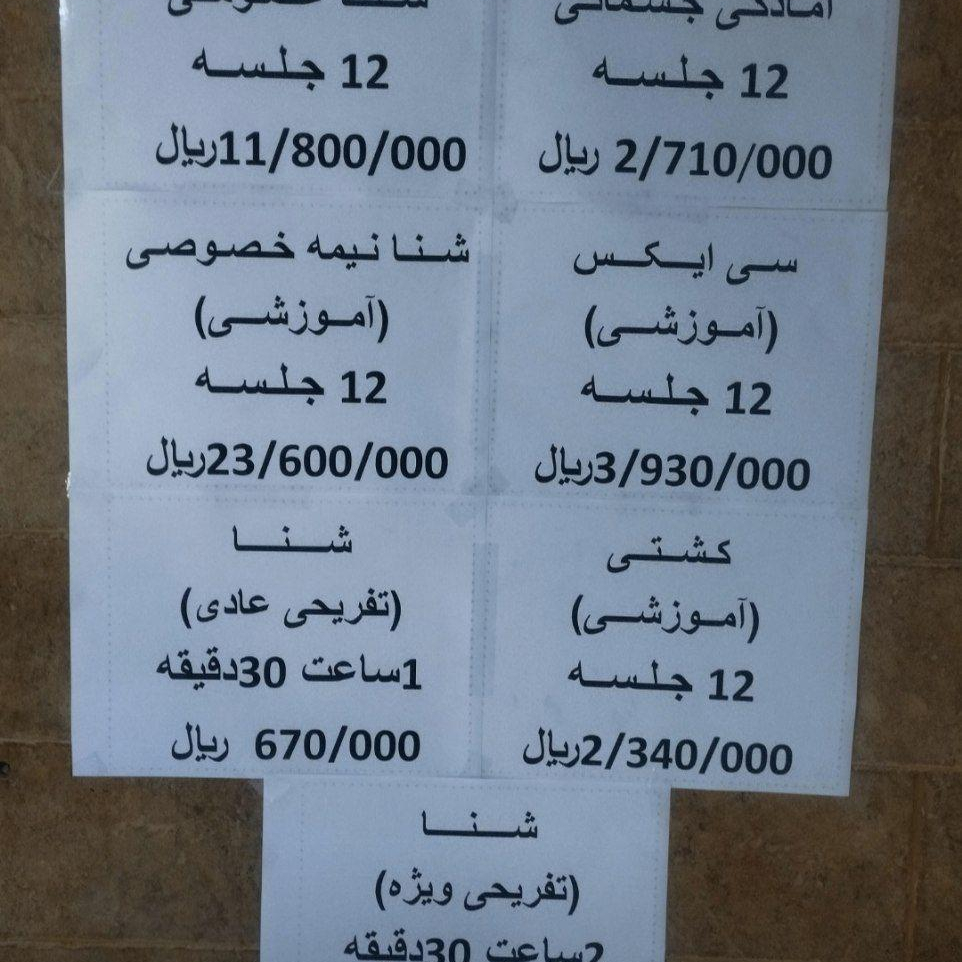 آمادگی جسمانی
12 جلسه
2/710/000 ریال
شنا خصوصی
12 جلسه
11/800/000ریال
سی ایکس
(آموزشی)
12 جلسه
3/930/000ریال
شنا نیمه خصوصی
(آموزشی)
12 جلسه
23/600/000ریال
کشتی
(آموزشی)
12 جلسه
2/340/000ریال
شنا
(تفریحی عادی)
1ساعت 30دقیقه
670/000 ریال
شنا
(تفریحی ویژه)
2ساعت 30دقیقه